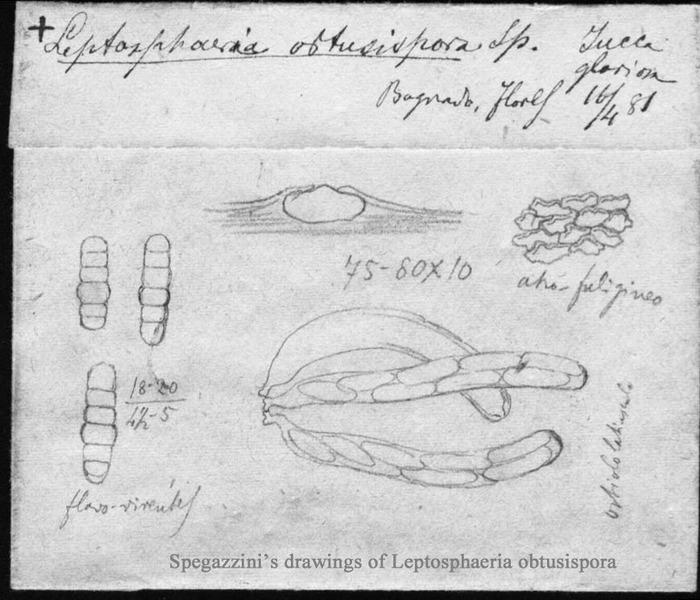 + Leptosphaeria obtusispora Sp.
Yucca
gloriosa
Bagnado, Flores 16/4 81
75-80×10
atro-fuligineo
18-20
4½-5
flavo-virentes
Spegazzini's drawings of Leptosphaeria obtusispora